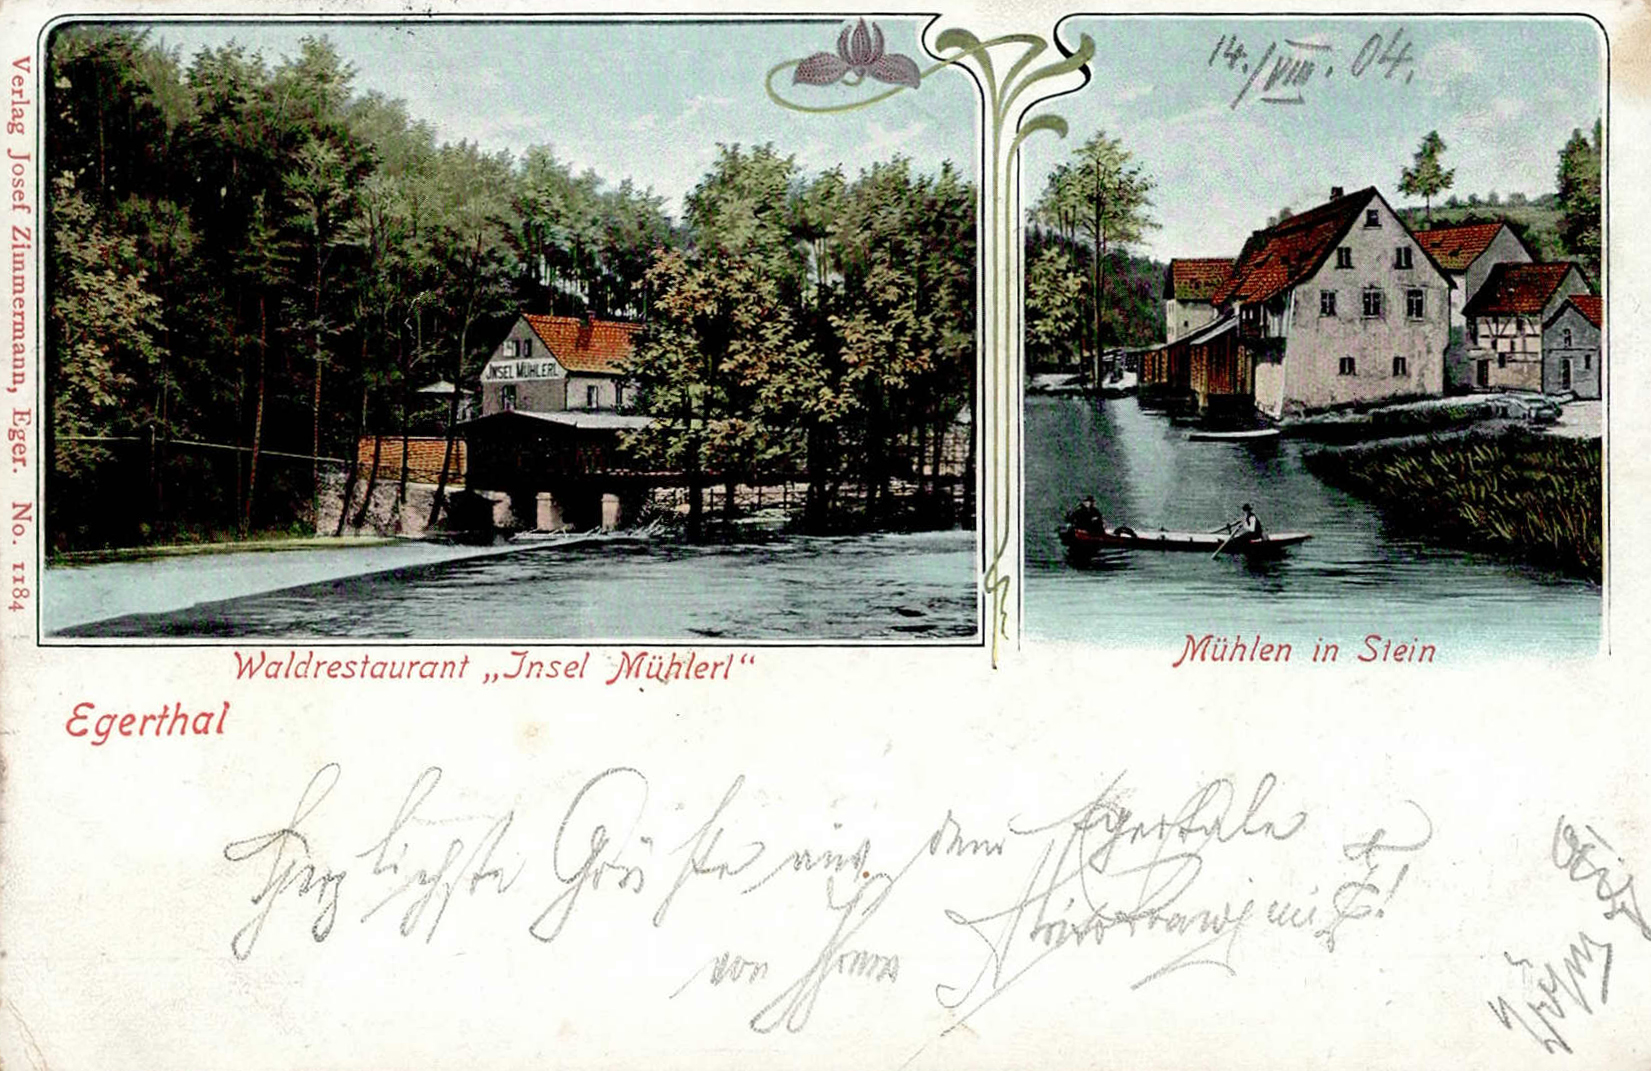 Verlag Josef Zimmermann, Eger. No. 1184
14./VIII. 04.
JNSEL MÜHLERL
Waldrestaurant „Insel Mühlerl“
Mühlen in Stein
Egerthal
Herzlichste Grüße aus dem Egertale
von Ihrem